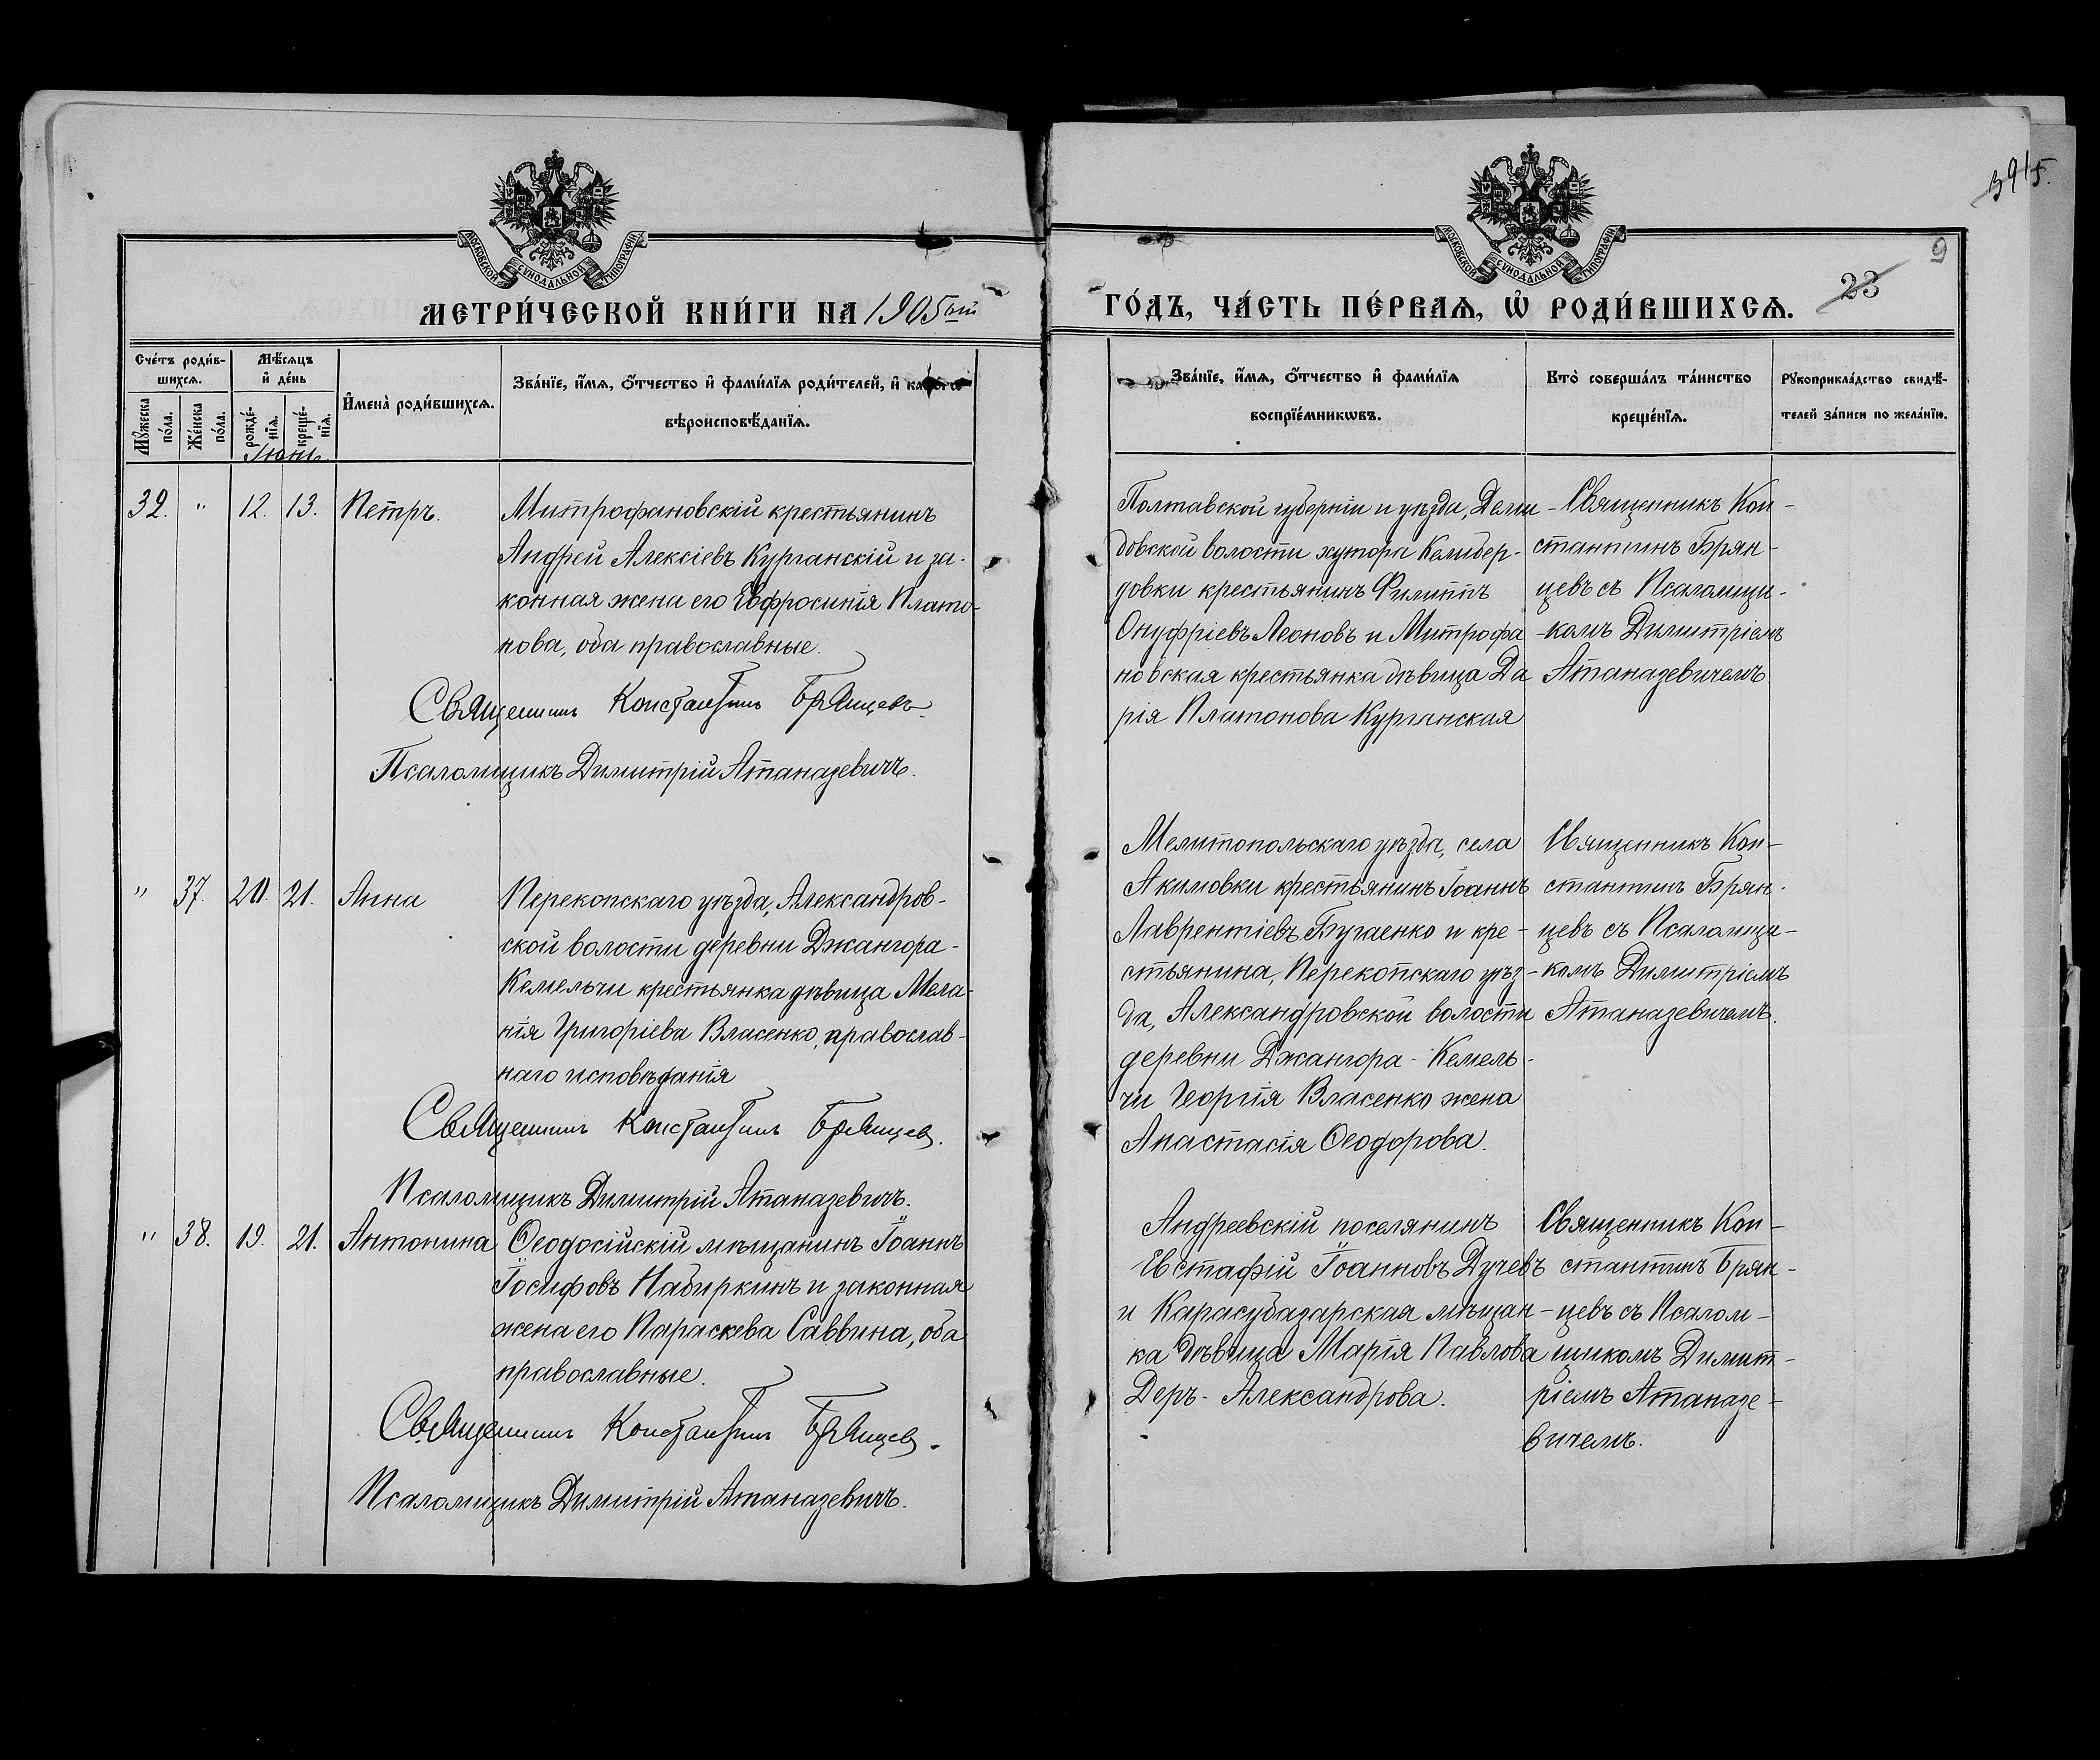 МОСКОВСКОЙ СУНОДАЛЬНОЙ ТИПОГРАФІИ
МЕТРИ́ЧЕСКОЙ КНИ́ГИ НА 1905ый
Сче́тъ роди́в-
шихсѧ.
Мѣ́сѧцъ
и҆ де́нь
Мꙋ́жеска
по́ла.
Же́нска
по́ла.
рожде́-
нїѧ.
креще́-
нїѧ.
И҆мена̀ роди́вшихсѧ.
Зва́нїе, и҆́мѧ, ѻ҆́тчество и҆ фами́лїѧ роди́телей, и҆ како́гѡ
вѣроисповѣ́данїѧ.
Іюнь.
32. " 12. 13. Петръ.
Митрофановскій крестьянинъ
Андрей Алексіевъ Курганскій и за-
конная жена его Евфросинія Плато-
нова, оба православные.
Священникъ Константинъ Брянцевъ.
Псаломщикъ Димитрій Атаназевичъ.
" 37. 20. 21. Анна
Перекопскаго уѣзда, Александров-
ской волости деревни Джангора-
Кемельчи крестьянка дѣвица Мела-
нія Григоріева Власенко, православ-
наго исповѣданія
Священникъ Константинъ Брянцевъ.
Псаломщикъ Димитрій Атаназевичъ.
" 38. 19. 21. Антонина
Ѳеодосійскій мѣщанинъ Іоаннъ
Іосифовъ Набиркинъ и законная
жена его Параскева Саввина, оба
православные.
Священникъ Константинъ Брянцевъ.
Псаломщикъ Димитрій Атаназевичъ.
3915.
9
МОСКОВСКОЙ СУНОДАЛЬНОЙ ТИПОГРАФІИ
ГО́ДЪ, ЧА́СТЬ ПЕ́РВАѦ, Ѡ҆ РОДИ́ВШИХСѦ. 23
Зва́нїе, и҆́мѧ, ѻ҆́тчество и҆ фами́лїѧ
воспрїе́мникѡвъ.
Кто̀ соверша́лъ та́инство
креще́нїѧ.
Рꙋкоприкла́дство свидѣ́-
телей за́писи по жела́нїю.
Полтавской губерніи и уѣзда, Деми-
довской волости хутора Келибер-
довки крестьянинъ Филиппъ
Онуфріевъ Леоновъ и Митрофа-
новская крестьянка дѣвица Да
рія Платонова Курганская
Священникъ Кон-
стантинъ Брян-
цевъ съ Псаломщи-
комъ Димитріемъ
Атаназевичемъ.
Мелитопольскаго уѣзда, села
Акимовки крестьянинъ Іоаннъ
Лаврентіевъ Бугаенко и кре-
стьянина, Перекопскаго уѣз-
да, Александровской волости
деревни Джангора-Кемель-
чи Георгія Власенко жена
Анастасія Ѳеодорова.
Священникъ Кон-
стантинъ Брян-
цевъ съ Псаломщи-
комъ Димитріемъ
Атаназевичемъ.
Андреевскій поселянинъ
Евстафій Іоанновъ Дучевъ
и Карасубазарская мѣщан-
ка дѣвица Марія Павлова
Деръ-Александрова.
Священникъ Кон-
стантинъ Брян-
цевъ съ Псалом-
щикомъ Димит-
ріемъ Атаназе-
вичемъ.